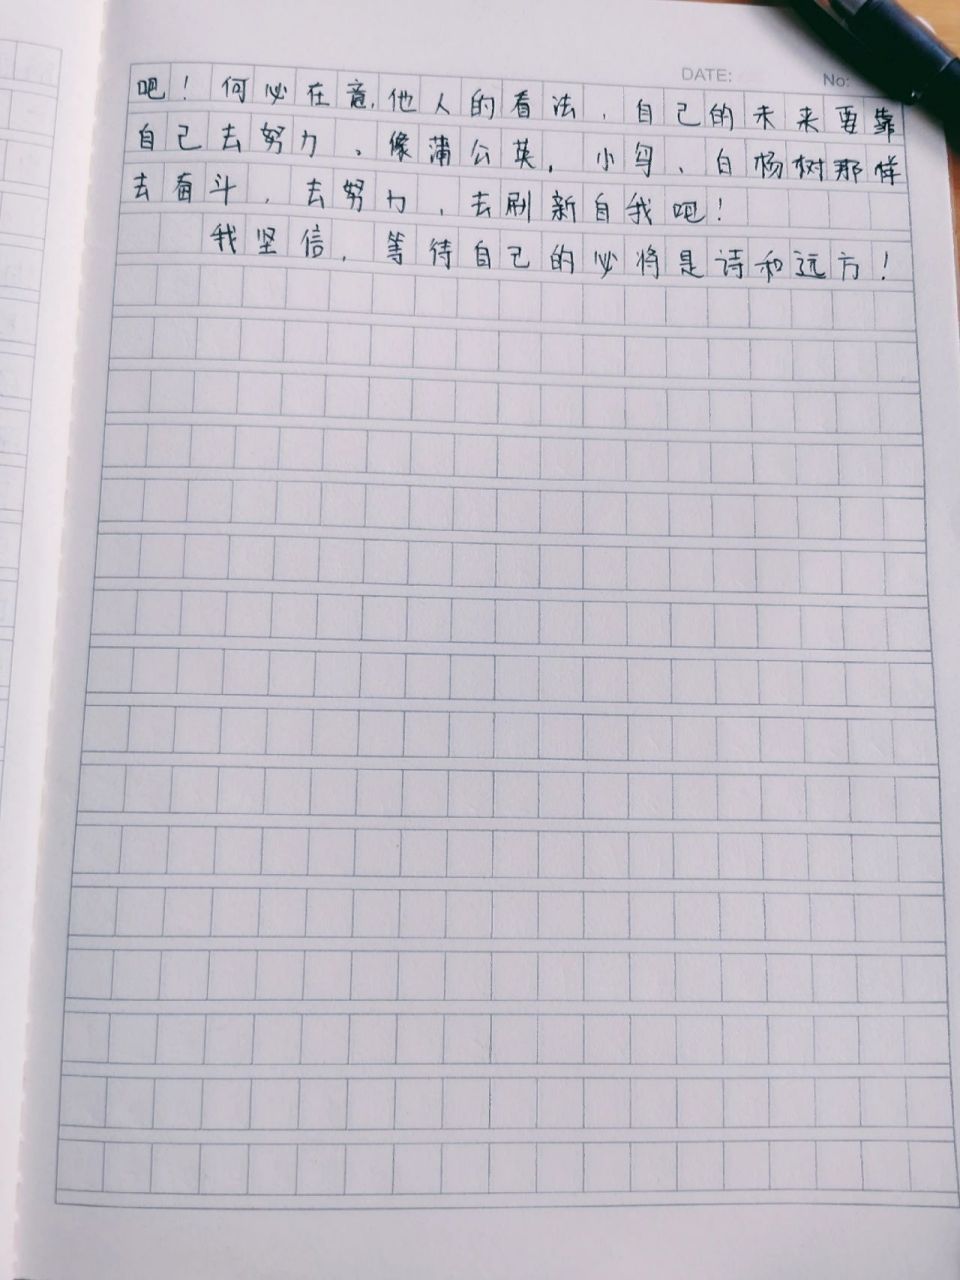 DATE:
No:
吧！何必在意,他人的看法,自己的未来要靠
自己去努力、像蒲公英,小鸟、白杨树那样
去奋斗,去努力,去刷新自我吧!
我坚信,等待自己的必将是诗和远方!